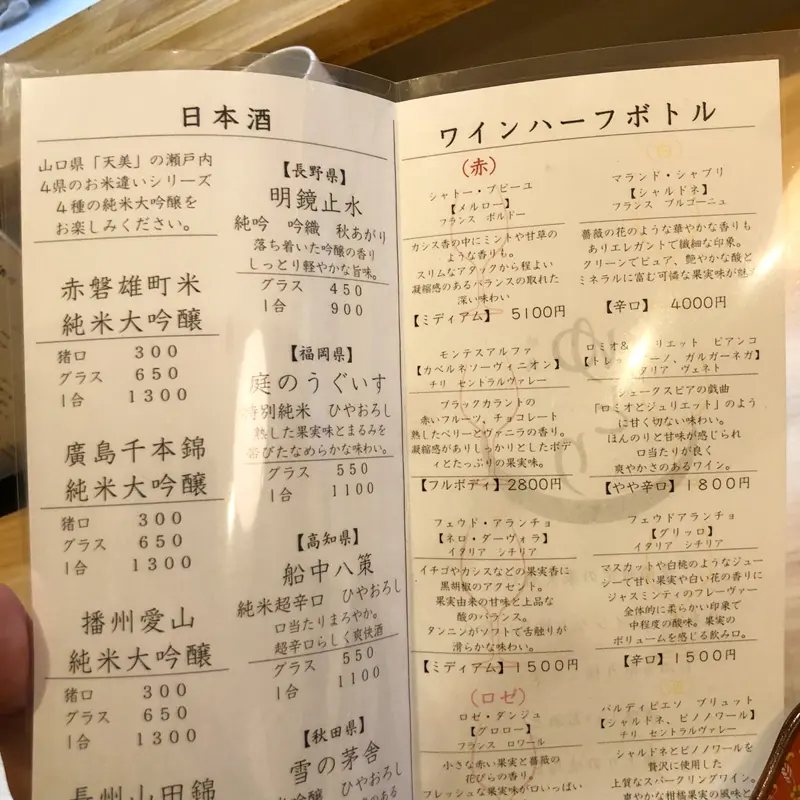 日本酒
山口県「天美」の瀬戸内
4県のお米違いシリーズ
4種の純米大吟醸を
お楽しみください。
赤磐雄町米
純米大吟醸
猪口 300
グラス 650
1合 1300
廣島千本錦
純米大吟醸
猪口 300
グラス 650
1合 1300
播州愛山
純米大吟醸
猪口 300
グラス 650
1合 1300
長州山田錦
【長野県】
明鏡止水
純吟 吟織 秋あがり
落ち着いた吟醸の香り
しっとり軽やかな旨味。
グラス 450
1合 900
【福岡県】
庭のうぐいす
特別純米 ひやおろし
熟した果実味とまるみを
帯びたなめらかな味わい。
グラス 550
1合 1100
【高知県】
船中八策
純米超辛口 ひやおろし
口当たりまろやか。
超辛口らしく爽快酒
グラス 550
1合 1100
【秋田県】
雪の茅舎
ひやおろし
ワインハーフボトル
(赤)
シャトー・プピーユ
【メルロー】
フランス ボルドー
カシス香の中にミントや甘草の
ような香りも。
スリムなアタックから程よい
凝縮感のあるバランスの取れた
深い味わい
【ミディアム】 5100円
モンテスアルファ
【カベルネソーヴィニオン】
チリ セントラルヴァレー
ブラックカラントの
赤いフルーツ、チョコレート
熟したベリーとヴァニラの香り。
凝縮感がありしっかりとしたボデ
ィとたっぷりの果実味。
【フルボディ】2800円
フェウド・アランチョ
【ネロ・ダーヴォラ】
イタリア シチリア
イチゴやカシスなどの果実香に
黒胡椒のアクセント。
果実由来の甘味と上品な
酸のバランス。
タンニンがソフトで舌触りが
滑らかな味わい。
【ミディアム】1500円
(ロゼ)
ロゼ・ダンジュ
【グロロー】
フランス ロワール
小さな赤い果実と薔薇の
花びらの香り。
フレッシュな果実味が口いっぱい
マランド・シャブリ
【シャルドネ】
フランス ブルゴーニュ
薔薇の花のような華やかな香りも
ありエレガントで繊細な印象。
クリーンでピュア、艶やかな酸と
ミネラルに富む可憐な果実味が魅
【辛口】 4000円
ロミオ&ジュリエット ビアンコ
【トレッビアーノ、ガルガーネガ】
イタリア ヴェネト
シェークスピアの戯曲
「ロミオとジュリエット」のよう
に甘く切ない味わい。
ほんのりと甘味が感じられ
口当たりが良く
爽やかさのあるワイン。
【やや辛口】1800円
フェウドアランチョ
【グリッロ】
イタリア シチリア
マスカットや白桃のようなジュー
シーで甘い果実や白い花の香りに
ジャスミンティのフレーヴァー
全体的に柔らかい印象で
中程度の酸味。果実の
ボリュームを感じる飲み口。
【辛口】1500円
バルディビエソ ブリュット
【シャルドネ、ピノノワール】
チリ セントラルヴァレー
シャルドネとピノノワールを
贅沢に使用した
上質なスパークリングワイン。
爽やかな柑橘果実の風味と